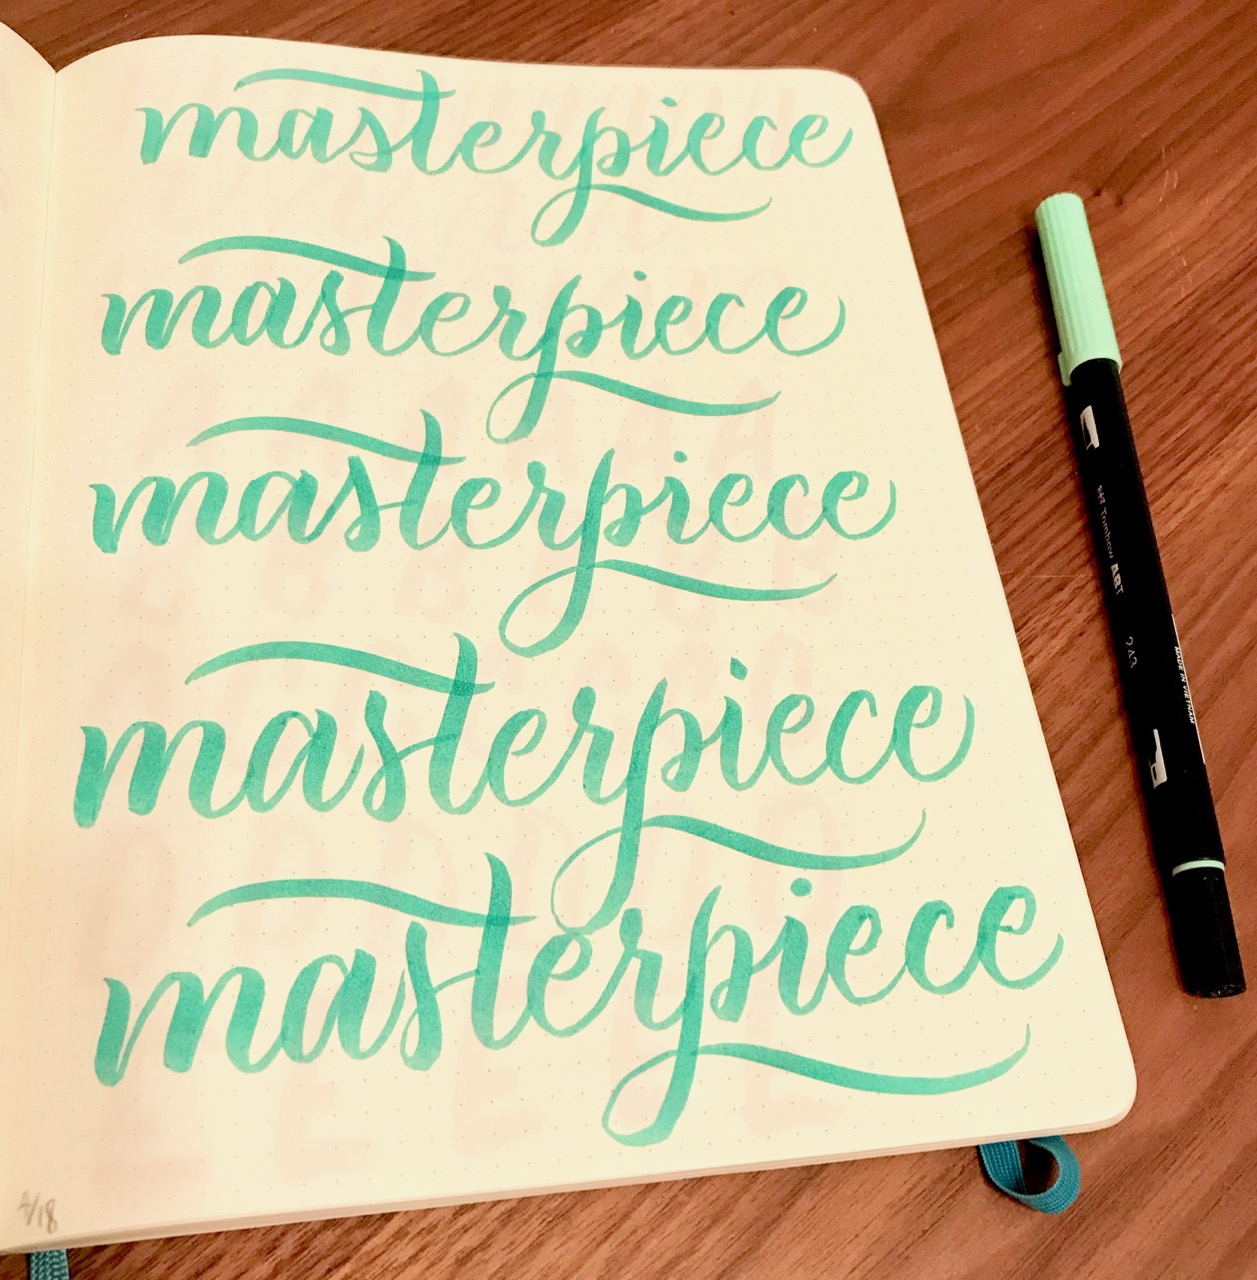 masterpiece
masterpiece
masterpiece
masterpiece
masterpiece
4/18
Tombow ART
243
MADE IN VIETNAM